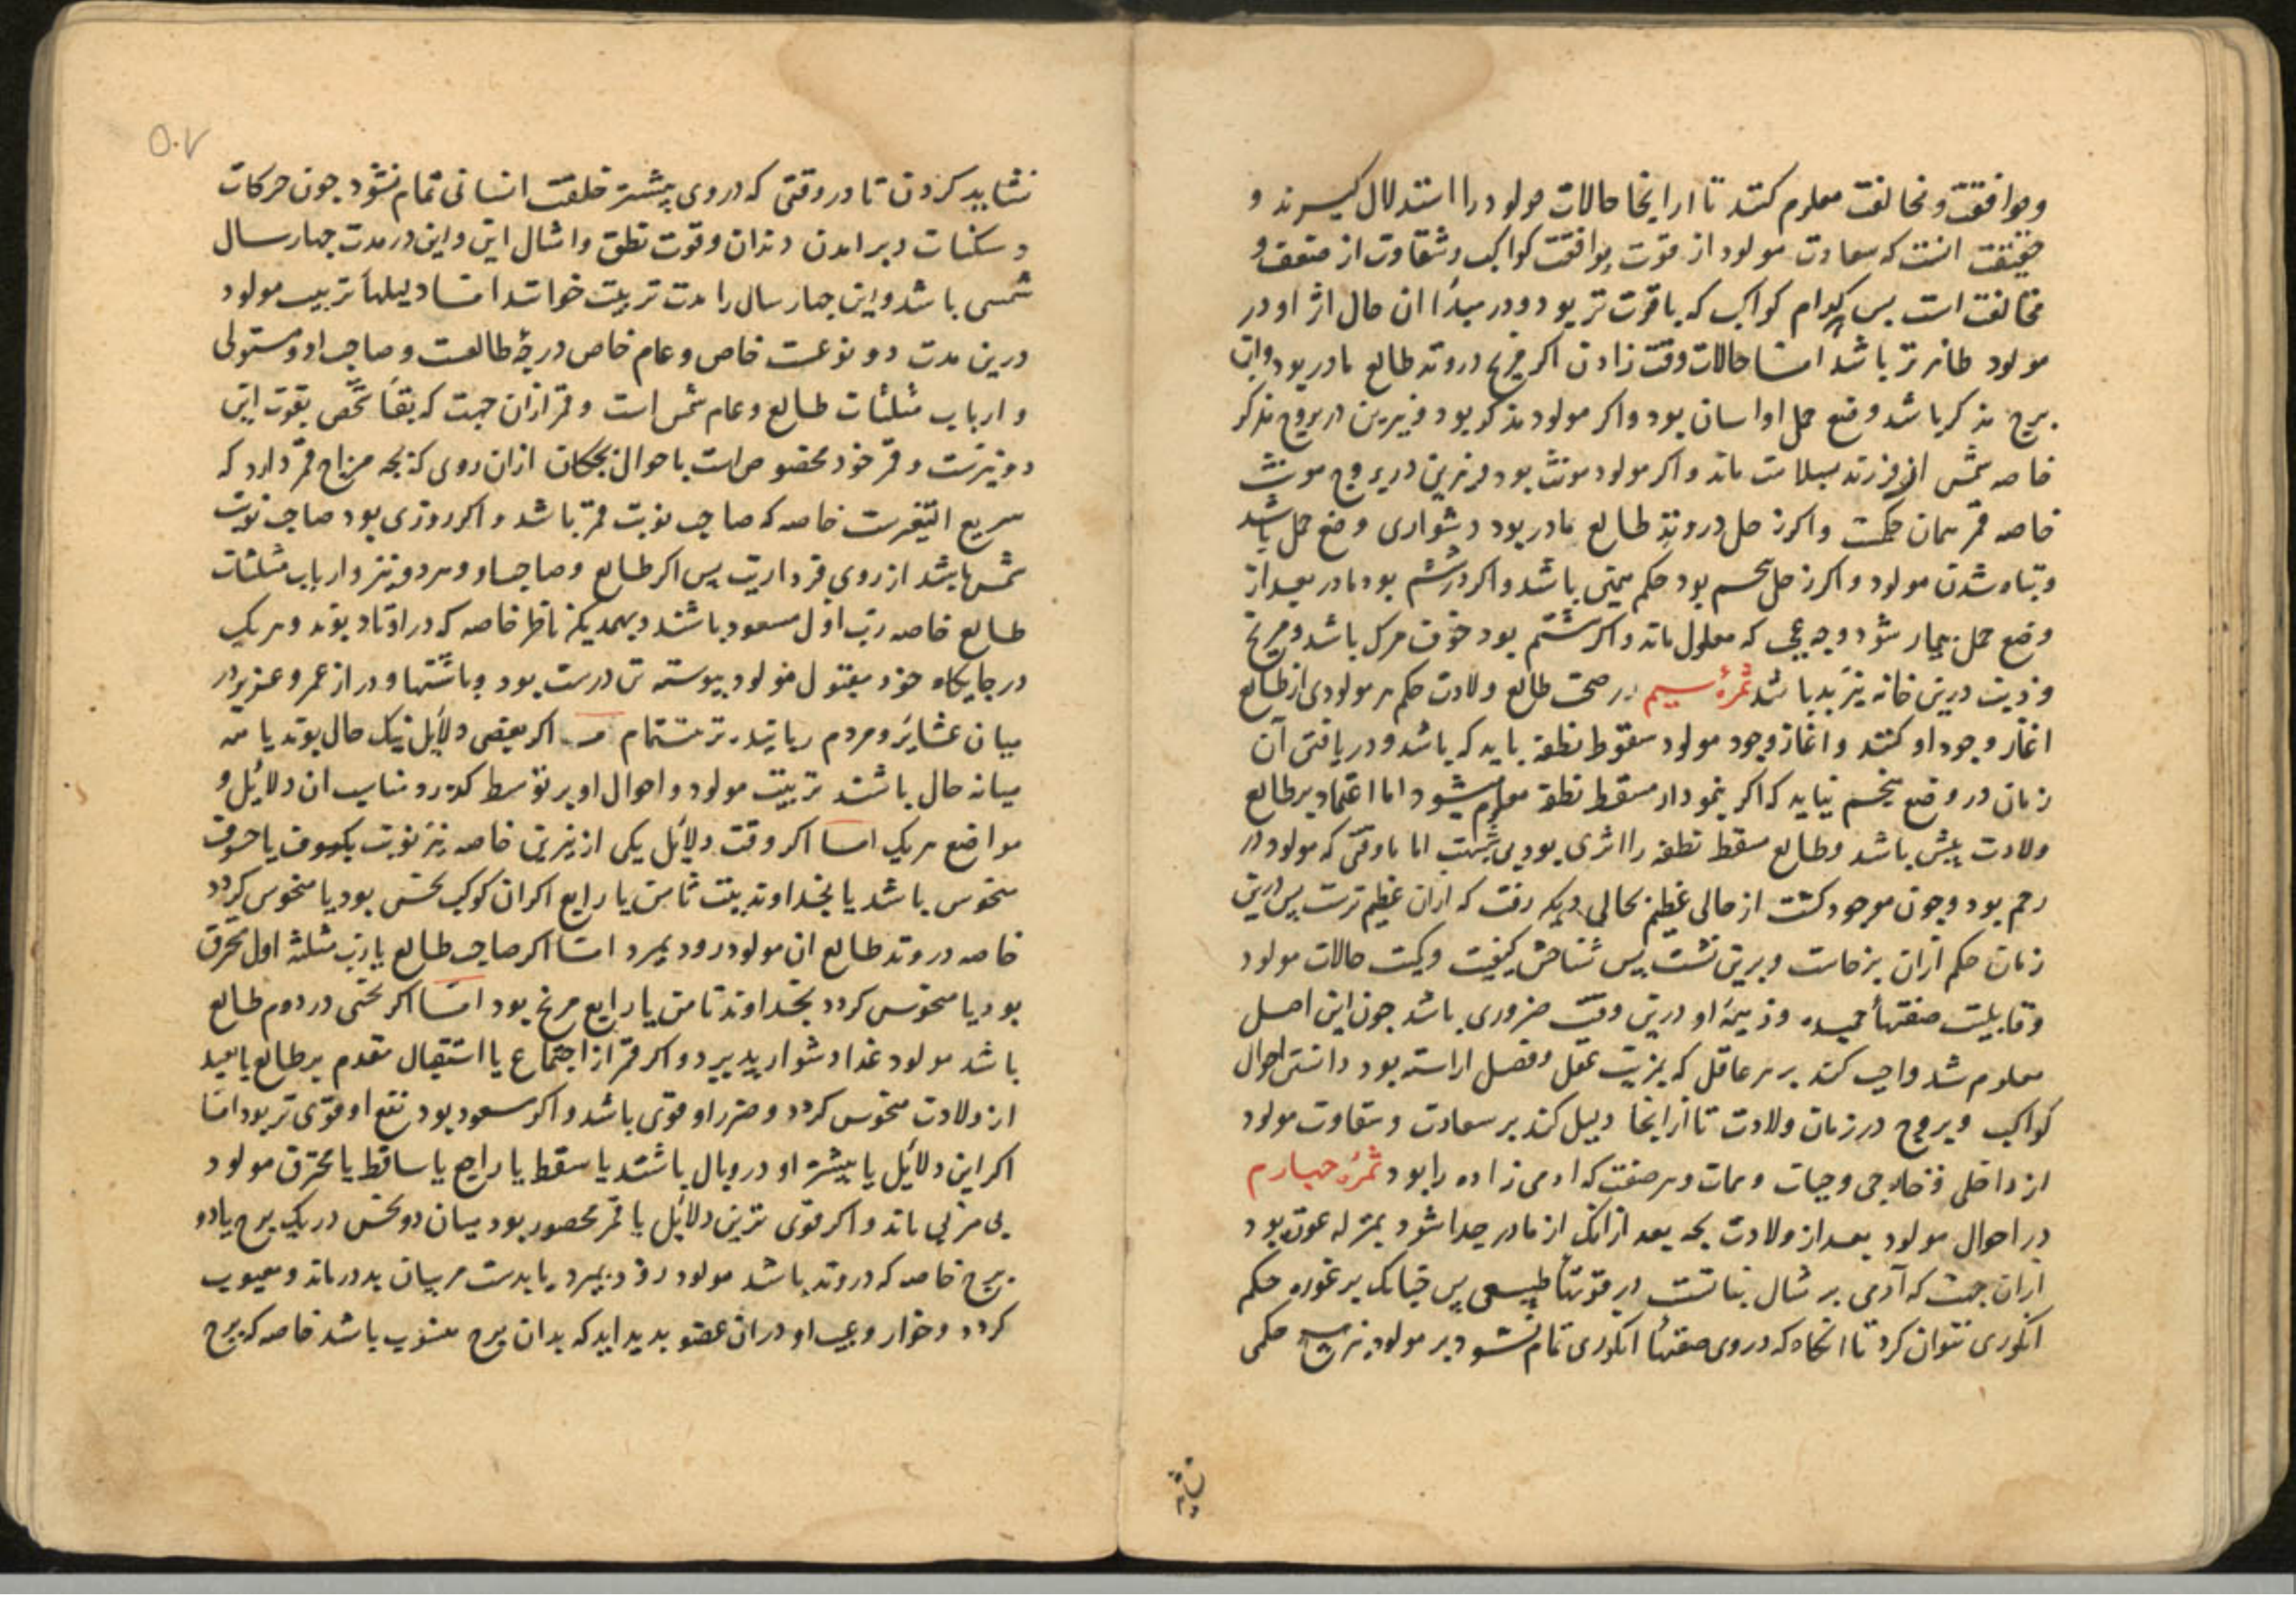 و موافقت و مخالفت معلوم کنند تا از اینجا حالات مولود را استدلال گیرند و
حقیقت انست که سعادت مولود از قوت و موافقت کواکب و شقاوت از ضعف و
مخالفت است بس کدام کواکب که باقوت تر بود و در مبدأ ان حال اثر او در
مولود ظاهر تر باشد امّا حالات وقت زادن اکر مریخ در وتد طالع مادر بود و ان
برج مذکر باشد وضع حمل او اسان بود و اکر مولود مذکر بود و نیرین در بروج مذکر
خاصه شمس ان فرزند بسلامت ماند و اکر مولود مونث بود و نیرین در بروج مونث
خاصه قمر همان حکمت و اکر زحل در وتد طالع مادر بود دشواری وضع حمل باشد
و تباه شدن مولود و اکر زحل بنجم بود حکم همین باشد و اکر در ششم بود مادر بعد از
وضع حمل بیمار شود و به عیبی که معلول ماند و اکر هشتم بود خوف مرک باشد و مریخ
و ذنب درین خانه نیز بد باشد ثمرهٔ سیم در صحت طالع ولادت حکم هر مولودی از طالع
اغاز وجود او کنند و اغاز وجود مولود سقوط نطفه باید که باشد و دریافتن آن
زمان در وضع بنجم نیاید که اکر نمودار مسقط نطفه معلوم میشود اما اعتماد بر طالع
ولادت بیش باشد و طالع مسقط نطفه را اثری بود بی شبهت اما تا وقتی که مولود در
رحم بود و چون موجود کشت از حالی عظیم بحالی دیکر رفت که ازان عظیم ترست پس درین
زمان حکم ازان برخاست و برین نشت پس شناختن کیفیت و کمیت حالات مولود
و قابلیت صفتهأ حمیده و ذمیمهٔ او درین وقت ضروری باشد جون این اصل
معلوم شد واجب کند بر هر عاقل که بمزیت عقل و فضل اراسته بود دانستن احوال
کواکب و بروج در زمان ولادت تا از اینجا دلیل کند بر سعادت و شقاوت مولود
از داخلی و خارجی و حیات و ممات و هر صفت که ادمی زاده را بود ثمرهٔ چهارم
در احوال مولود بعد از ولادت بجه بعد ازانک از مادر جدا شود بمنزله عون بود
ازان جهت که آدمی بر مثال نباتست در قوتهأ طبیعی پس جنانک بر غوره حکم
انکوری نتوان کرد تا انکاه که در وی صفتهأ انکوری تمام نشود بر مولود نیز هیچ حکمی
نشاید
۵۰۷
نشاید کردن تا در وقتی که در وی بیشتر خلقت انسانی تمام نشود جون حرکات
و سکنات و بر امدن دندان و قوت نطق و امثال این و این در مدت جهار سال
شمسی باشد و این جهار سال را مدت تربیت خوانند امّا دلیلهأ تربیت مولود
درین مدت دو نوعست خاص و عام خاص درجهٔ طالعست و صاحب او و مستولی
و ارباب مثلثات طالع و عام شمس است و قمر ازان جهت که بقأ شخص بقوت این
دو نیرست و قمر خود مخصوص است باحوال بجکان ازان روی که بجه مزاج قمر دارد که
سریع التغیرست خاصه که صاحب نوبت قمر باشد و اکر روزی بود صاحب نوبت
شمس باشد از روی فرداریت پس اکر طالع و صاحب او و هر دو نیر و ارباب مثلثات
طالع خاصه رب اول مسعود باشند و بهمدیکر ناظر خاصه که در اوتاد بوند و هر یک
در جایکاه خود مقبول مولود بیوسته تن درست بود و باشتها و دراز عمر و عزیز در
میان عشایر و مردم اکر بعضی دلایل نیک حال بوند یا نه
میانه حال باشند تربیت مولود و احوال او بر توسط کذرد و مناسب ان دلائل و
مواضع هر یک امّا اکر وقت دلائل یکی از نیرین خاصه نیر نوبت بکسوف یا خسوف
منحوس باشد یا بخداوند بیت ثامن یا رابع اکر ان کوکب نحس بود یا منحوس کردد
خاصه در وتد طالع ان مولود زود بمیرد امّا اکر صاحب طالع یا رب مثلثه اول محترق
بود یا منحوس کردد بخداوند ثامن یا رابع مریخ بود امّا اکر نحسی در دوم طالع
باشد مولود غذا دشوار پذیرد و اکر قمر از اجتماع یا استقبال مقدم بر طالع یا بعد
از ولادت منحوس کردد و ضرر او قوی باشد و اکر مسعود بود نفع او قوی تر بود امّا
اکر این دلائل یا بیشتر او در وبال باشند یا سقط یا راجع یا ساقط یا محترق مولود
بی مربی ماند و اکر قوی ترین دلائل یا قمر محصور بود میان دو نحس در یک برج یا دو
برج خاصه که در وتد باشد مولود زود بمیرد یا بدست مربیان بد درماند و معیوب
کردد و خوار و عیب او دران عضو بدید اید که بدان برج منسوب باشد خاصه که برج